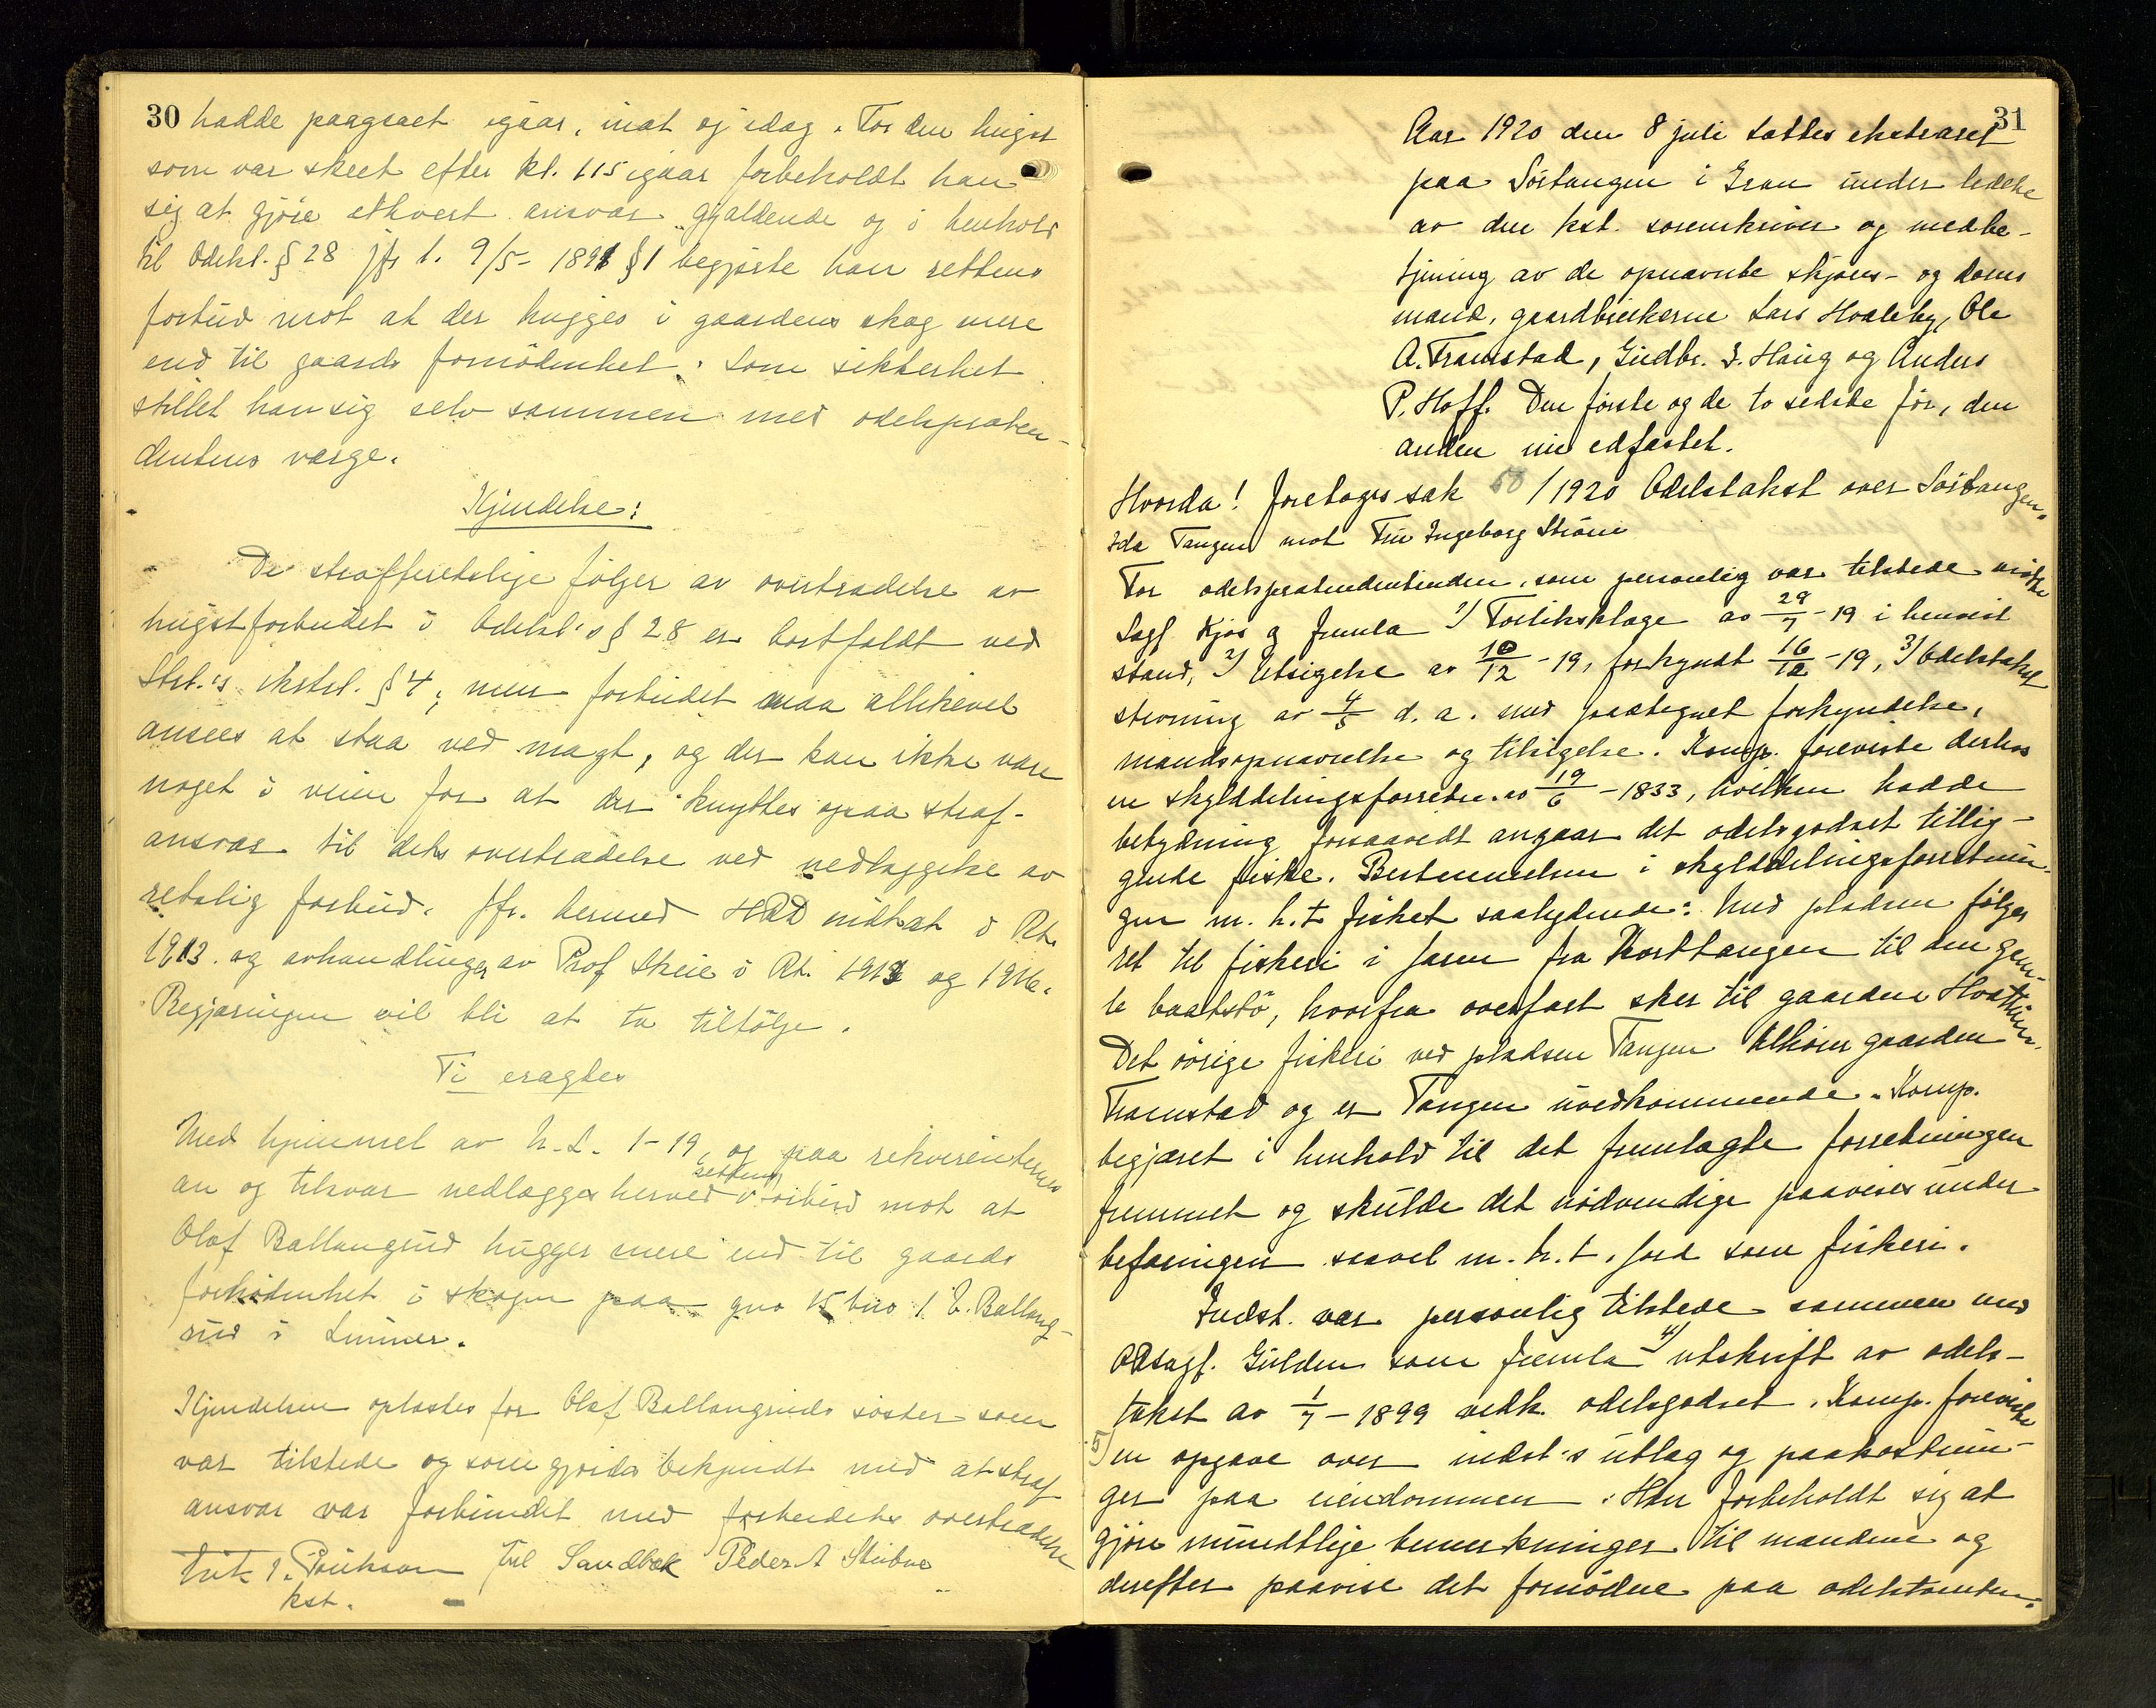 30
hadde paagaaet igaar, inat og idag. For den hugst
som var skeet efter kl. 115 igaar forbeholdt han
sig at gjøre ethvert ansvar gjældende og i henhold
til Odelsl. § 28 jfr l. 9/5- 1891 § 1 begjærte han rettens
forbud mot at der hugges i gaardens skog mere
end til gaards fornødenhet. Som sikkerhet
stillet han sig selv sammen med odelspræten-
dentens værge.
Kjendelse:
De strafferetslige følger av overtrædelse av
hugstforbudet i Odelsl.'s § 28 er bortfaldt ved
Strl.'s ikrtrl. § 4; men forbudet maa allikevel
ansees at staa ved magt, og der kan ikke være
noget i veien for at der knyttes straf-
ansvar til dets overtrædelse ved nedlæggelse av
retslig forbud. Jfr. hermed HRD indtat i Rt.
1913. og avhandlinger av Prof Skeie i Rt. 1913 og 1916.
Begjæringen vil bli at ta tilfølge.
Ti eragtes
Med hjemmel av N.L. 1-19, og paa rekvirentens
an og tilsvar nedlægges herved rettens forbud mot at
Olaf Ballangrud hugger mere end til gaards
fornødenhet i skogen paa gno 15 bno 1. Ballang-
rud i Lunner.
Kjendelsen oplæstes for Olaf Ballangruds søster som
var tilstede og som gjordes bekjendt med at straf
ansvar var forbundet med forbudets overtrædelse
Erik T. Poulsson Jul Sandbæk Peder A Stubne
kst.
31
Aar 1920 den 8 juli sattes ekstraret
paa Sörtangen i Gran under ledelse
av den kst. sorenskriver og medbe-
tjening av de opnævnte skjøns- og doms
mænd, gaardbrukerne Lars Hvaleby, Ole
A. Framstad, Gudbr. I. Haug og Anders
P. Hoff. Den første og de to sidste før, den
anden nu edfæstet.
Hvorda! foretoges sak 58/1920 Odelstakst over Sörtangen.
Ida Tangen mot Fru Ingeborg Strøm
For odelsprætendentinden, som personlig var tilstede møtte
Sagf. Kjos og fremla 1) Forliksklage av 29/7-19 i henvist
stand, 2) Utsigelse av 10/12-19, forkyndt 16/12-19, 3) Odelstakst
stevning av 4/5 d.a. med paategnet forkyndelse,
mandsopnævnelse og tilsigelse. Komp. foreviste derhos
en skylddelingsforretn. av 19/6-1833, hvilken hadde
betydning forsaavidt angaar det odelsgodset tillig-
gende fiske. Bestemmelsen i skylddelingsforretnin-
gen m.h.t fisket saalydende: Med pladsen følger
ret til fiskeri i Jaren fra Korttangen til den gam-
le baatstø, hvorfra overfart sker til gaarden Hvattum.
Det øvrige fiskeri ved pladsen Tangen tilhører gaarden
Framstad og er Tangen uvedkommende. Komp.
begjæret i henhold til det fremlagte forretningen
fremmet og skulde det nødvendige paavises under
befaringen saavel m.h.t. jord som fiskeri.
Indst. var personlig tilstede sammen med
ORsagf. Gulden som fremla 4) utskrift av odels-
takst av 1/7-1899 vedk. odelsgodset. Komp. foreviste
5) en opgave over indst's utlæg og paakostnin-
ger paa eiendommen. Han forbeholdt sig at
gjøre mundtlige bemerkninger til mændene og
derefter paavise det fornødne paa odelstomten.